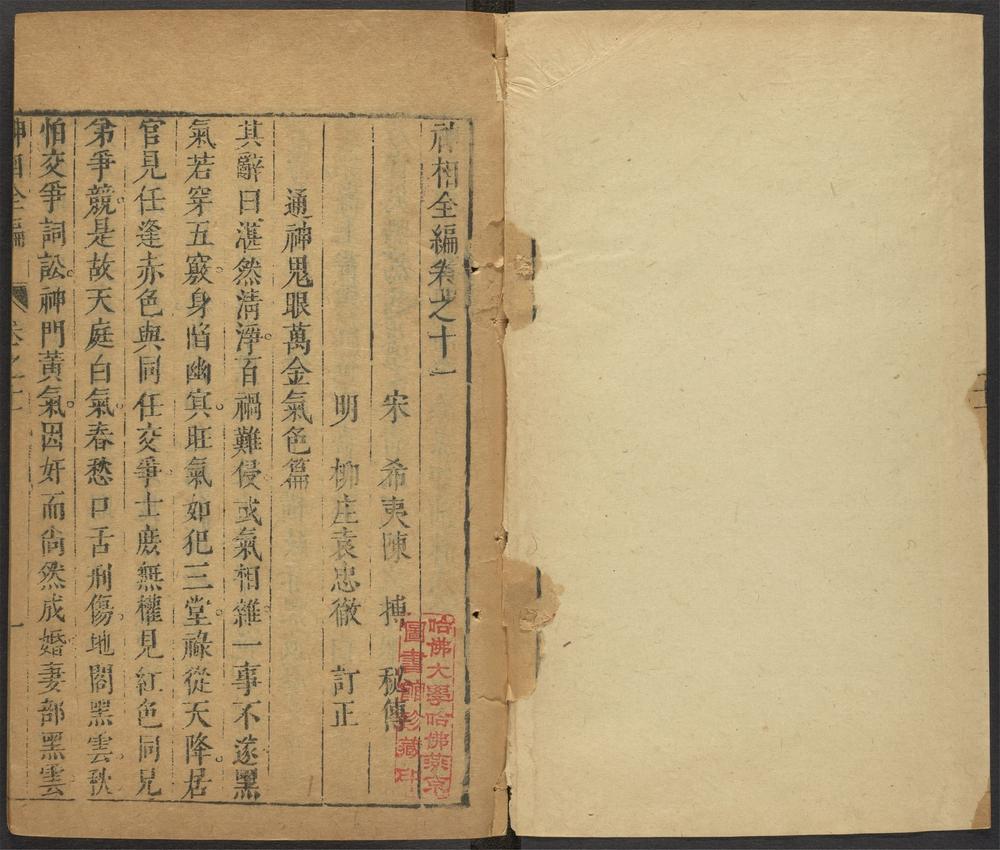 神相全編卷之十一
宋　希夷陳　摶　秘傳
明　柳庄袁忠徹　訂正
通神鬼眼萬金氣色篇
其辭曰湛然淸淨。百禍難侵或氣相雜。一事不遂黑
氣若穿五竅。身喑幽㝠。旺氣如犯三堂。祿從天降。居
官見任逢赤色與同任交爭士庶無權見紅色同兄
弟爭競。是故天庭白氣。春愁口舌刑傷。地閣黑雲。秋
怕交爭詞訟。神門黃氣。因奸而尙然成婚妻部黑雲
神相全編
卷之十一
一
哈佛大學哈佛燕京
圖書館珍藏印